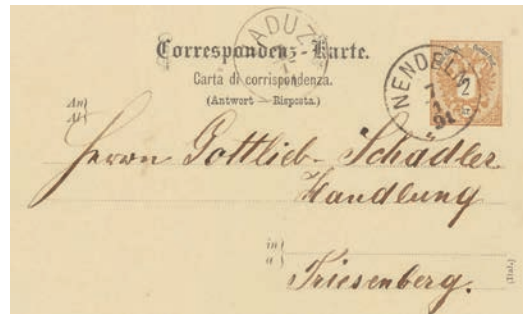 ADUZ
Correspondenz-Karte.
Carta di corrispondenza.
(Antwort – Risposta.)
NENDELN
7
1
91
2
An
Al
Herrn Gottlieb Schädler
Handlung
in
a
Triesenberg.
(Ital.)